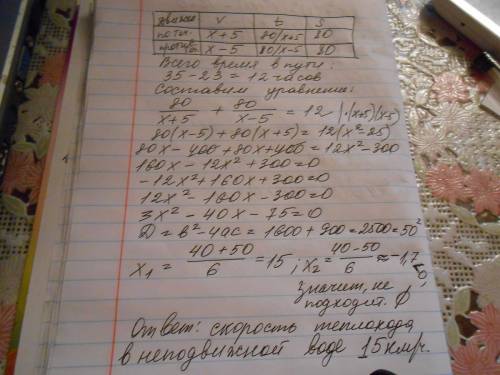 движен. v t S
по теч. x+5 80/x+5 80
против x-5 80/x-5 80
Всего время в пути:
35-23=12 часов
Составим уравнение:
80/x+5 + 80/x-5 = 12 |·(x+5)(x-5)
80(x-5)+80(x+5)=12(x²-25)
80x-400+80x+400=12x²-300
160x-12x²+300=0
-12x²+160x+300=0
12x²-160x-300=0
3x²-40x-75=0
D=b²-4ac=1600+900=2500=50²
x₁= 40+50/6 =15; x₂= 40-50/6 ≈-1,7<0,
Значит, не
подходит. ∅
Ответ: скорость теплохода
в неподвижной воде 15км/ч.